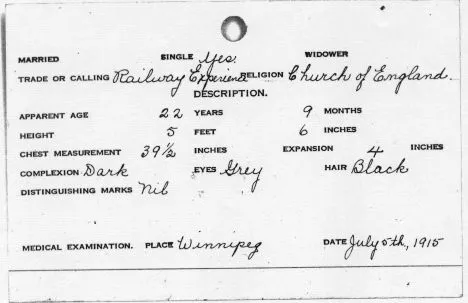 MARRIED SINGLE Yes. WIDOWER
TRADE OR CALLING Railway Experience RELIGION Church of England.
DESCRIPTION.
APPARENT AGE 22 YEARS 9 MONTHS
HEIGHT 5 FEET 6 INCHES
CHEST MEASUREMENT 39½ INCHES EXPANSION 4 INCHES
COMPLEXION Dark EYES Grey HAIR Black
DISTINGUISHING MARKS Nil
MEDICAL EXAMINATION. PLACE Winnipeg DATE July 5th, 1915